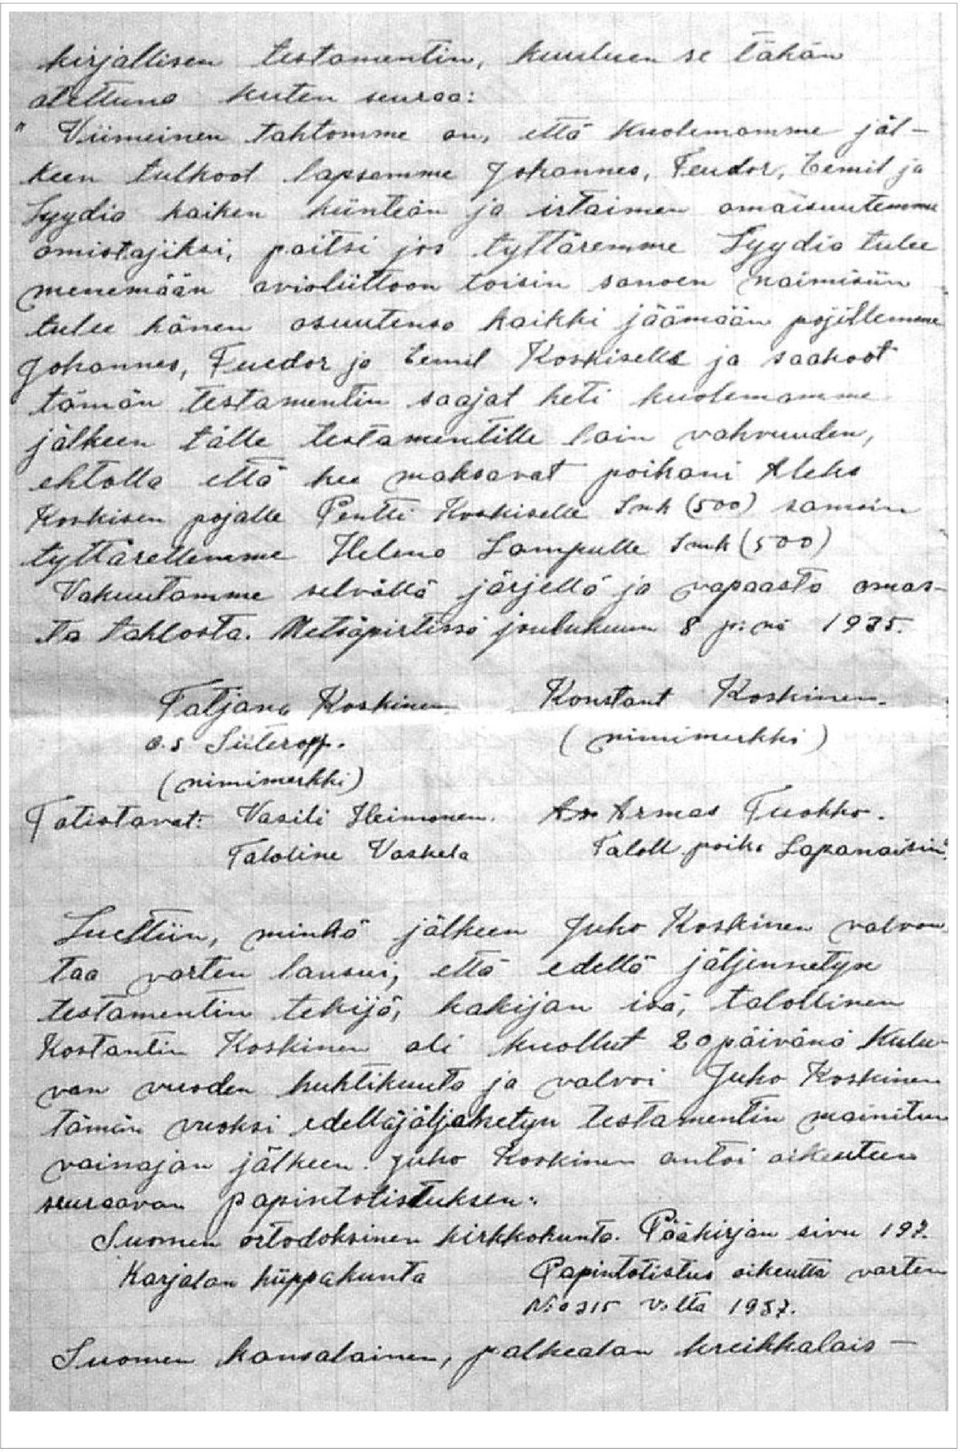 kirjallisen testamentin, kuuluen se tähän
otettuna kuten seuraa:
" Viimeinen tahtomme on, että kuolemamme jäl-
keen tulkoot lapsemme Johannes, Feudor, Eemil ja
Lyydia kaiken kiinteän ja irtaimen omaisuutemme
omistajiksi, paitsi jos tyttäremme Lyydia tulee
menemään avioliittoon toisin sanoen naimisiin
tulee hänen osuutensa kaikki jäämään pojillemme
Johannes, Fuedor ja Eemil Koskiselle ja saakoot
tämän testamentin saajat heti kuolemamme
jälkeen tälle testamentille lain vahvuuden,
ehtolla että he maksavat poikani Aleks
Koskisen pojalle Pentti Koskiselle Smk (500) samoin
tyttärellemme Helena Lampulle Smk (500)
Vakuutamme selvällä järjellä ja vapaasta omas-
ta tahtosta. Metsäpirtissä joulukuun 8 p:nä 1935.
Tatjana Koskinen. Konstant Koskinen.
o.s Siiteroff. (nimimerkki)
(nimimerkki)
Totistavat: Vasili Heimonen. Armas Tuokko.
Talolline Vaskela Taloll. poika Lapanaisin.
Luettiin, minkä jälkeen Juho Koskinen valvon-
taa varten lausui, että edellä jäljennetyn
testamentin tekijä, hakijan isä, talollinen
Kostantin Koskinen oli kuollut 20 päivänä kulu-
van vuoden huhtikuuta ja valvoi Juho Koskinen
tämän vuoksi edelläjäljaketyn testamentin mainitun
vainajan jälkeen. Juho Koskinen antoi oikeuteen
seuraavan papintotistuksen:
Suomen ortodoksinen kirkkokunta. Pääkirjan sivu 197.
Karjalan hiippakunta Papintotistus oikeutta varten
No 215 v.lta 1937.
Suomen kansalainen, palkealan kreikkalais-